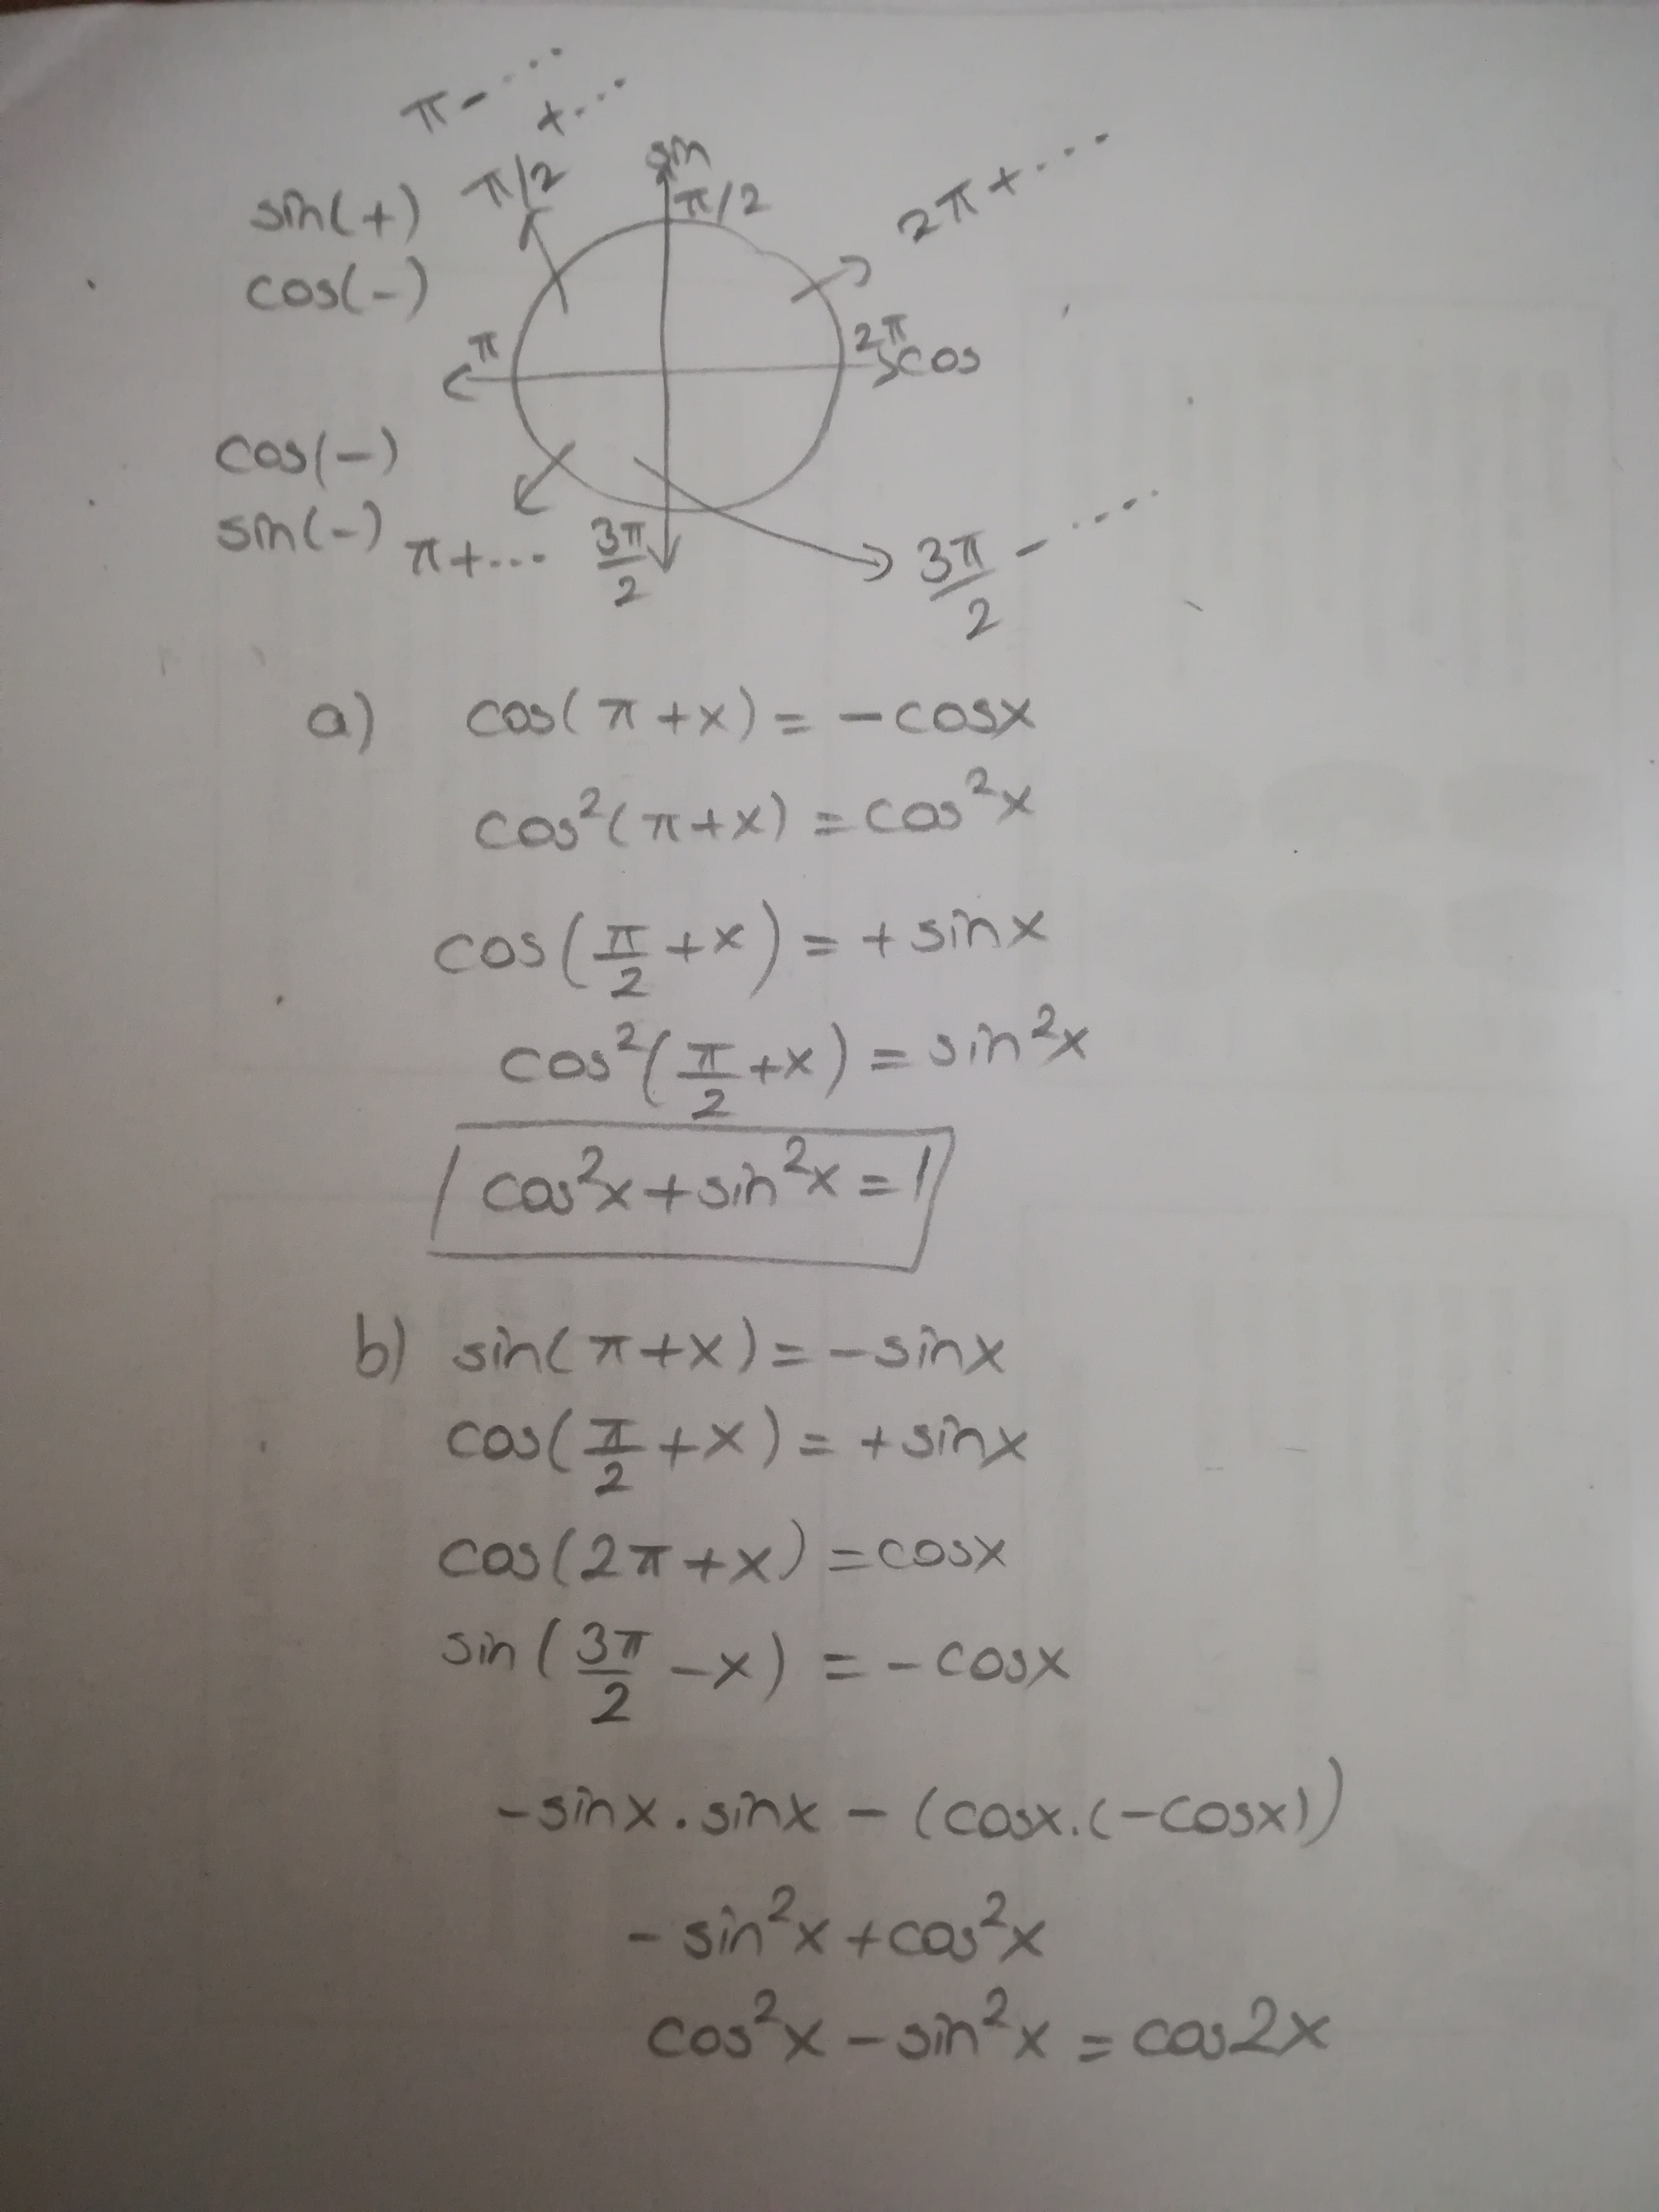 π-....
+...
sin
sin(+) π/2 π/2 2π+....
cos(-)
π 2π
cos
cos(-)
sin(-) π+... 3π/2 3π/2 - ....
a) cos(π+x)=-cosx
cos²(π+x)=cos²x
cos(π/2+x)=+sinx
cos²(π/2+x)=sin²x
cos²x+sin²x=1
b) sin(π+x)=-sinx
cos(π/2+x)=+sinx
cos(2π+x)=cosx
sin(3π/2-x)=-cosx
-sinx.sinx-(cosx.(-cosx))
-sin²x+cos²x
cos²x-sin²x=cos2x